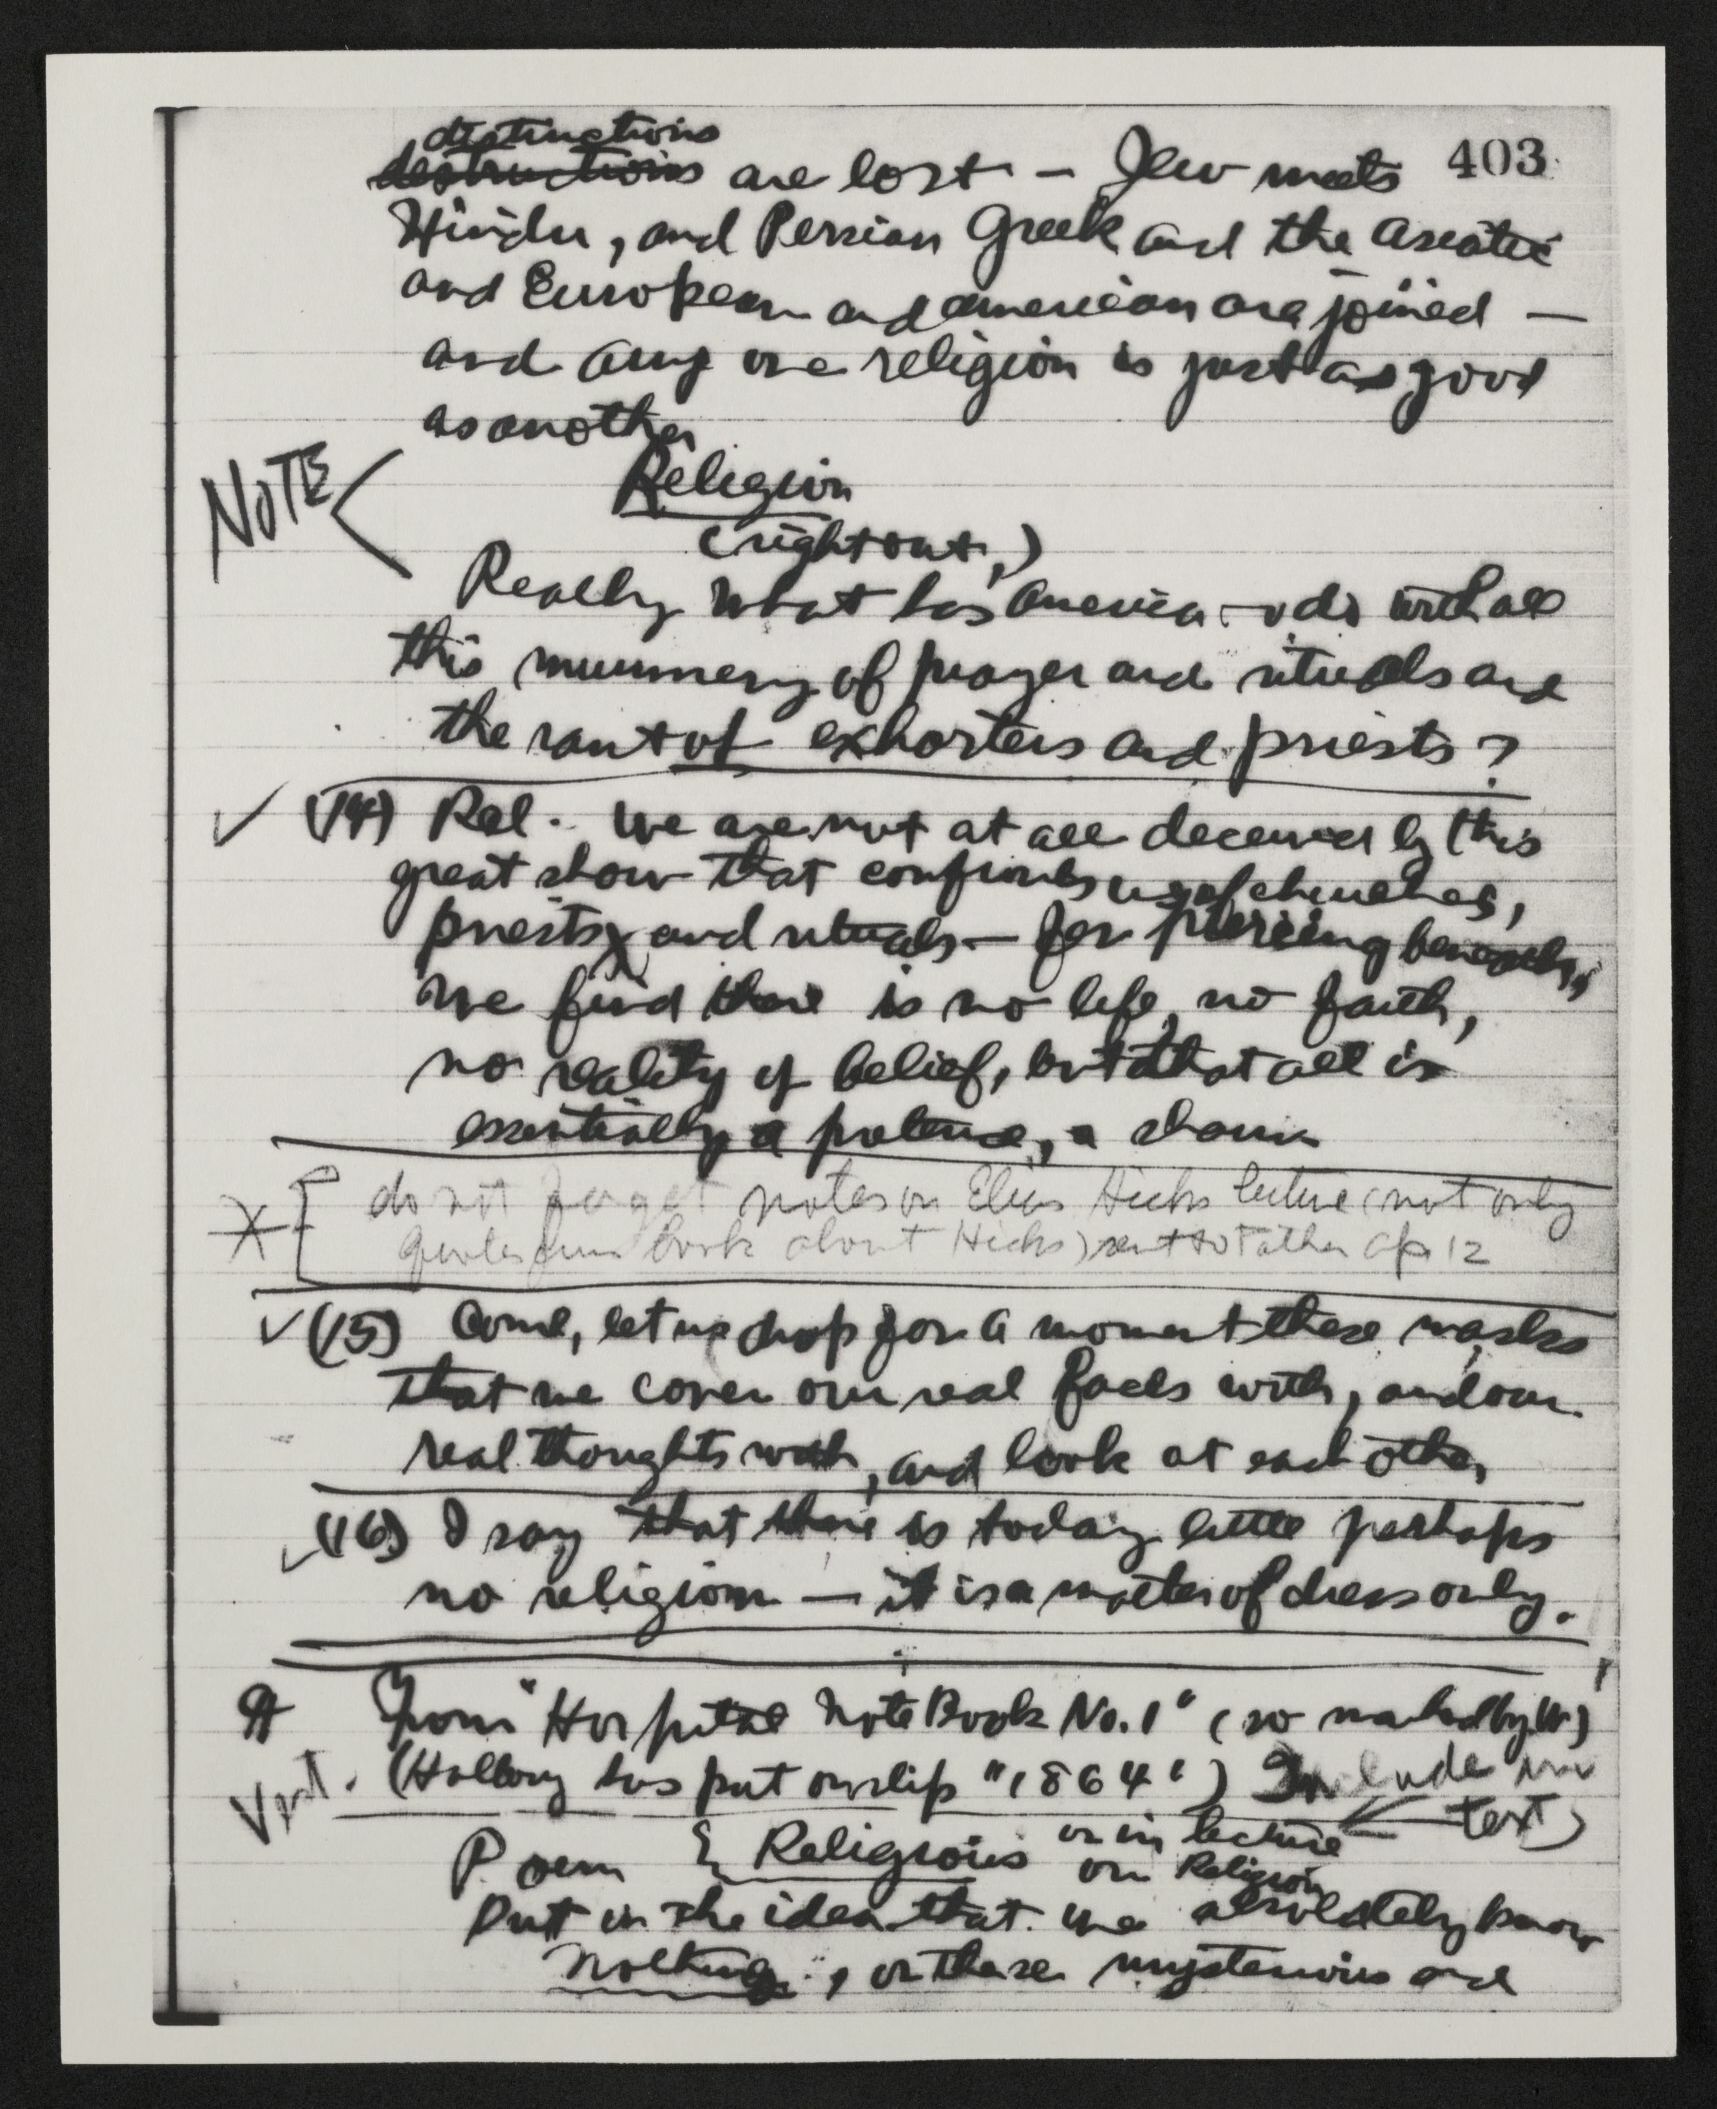 distinctions
destructions are lost - Jew meets 403
Hindu, and Persian Greek and the Asiatic
and European and American are joined —
and any one religion is just as good
as another
NOTE
Religion
(right out,)
Really what has America to do with all
this mummery of prayer and rituals and
the rant of exhorters and priests?
(14) Rel. We are not at all deceived by this
great show that confronts us of churches,
priests, and rituals — for piercing beneath,
we find there is no life, no faith,
no reality of belief, but that all is
essentially a pretence, a sham
do not forget notes on Elias Hicks lecture (not only
quotes from book about Hicks) sent to Father Ap 12
(15) Come, let us drop for a moment these masks
that we cover our real faces with, and our
real thoughts with, and look at each other
(16) I say that there is today little perhaps
no religion — it is a matter of dress only.
From "Hospital Note Book No. 1" (so marked by W)
(Holloway has put on slip "1864") Include in
Vert. text)
Poem { Religious or in lecture
on Religion
Put in the idea that we absolutely know
nothing, on these mysterious and